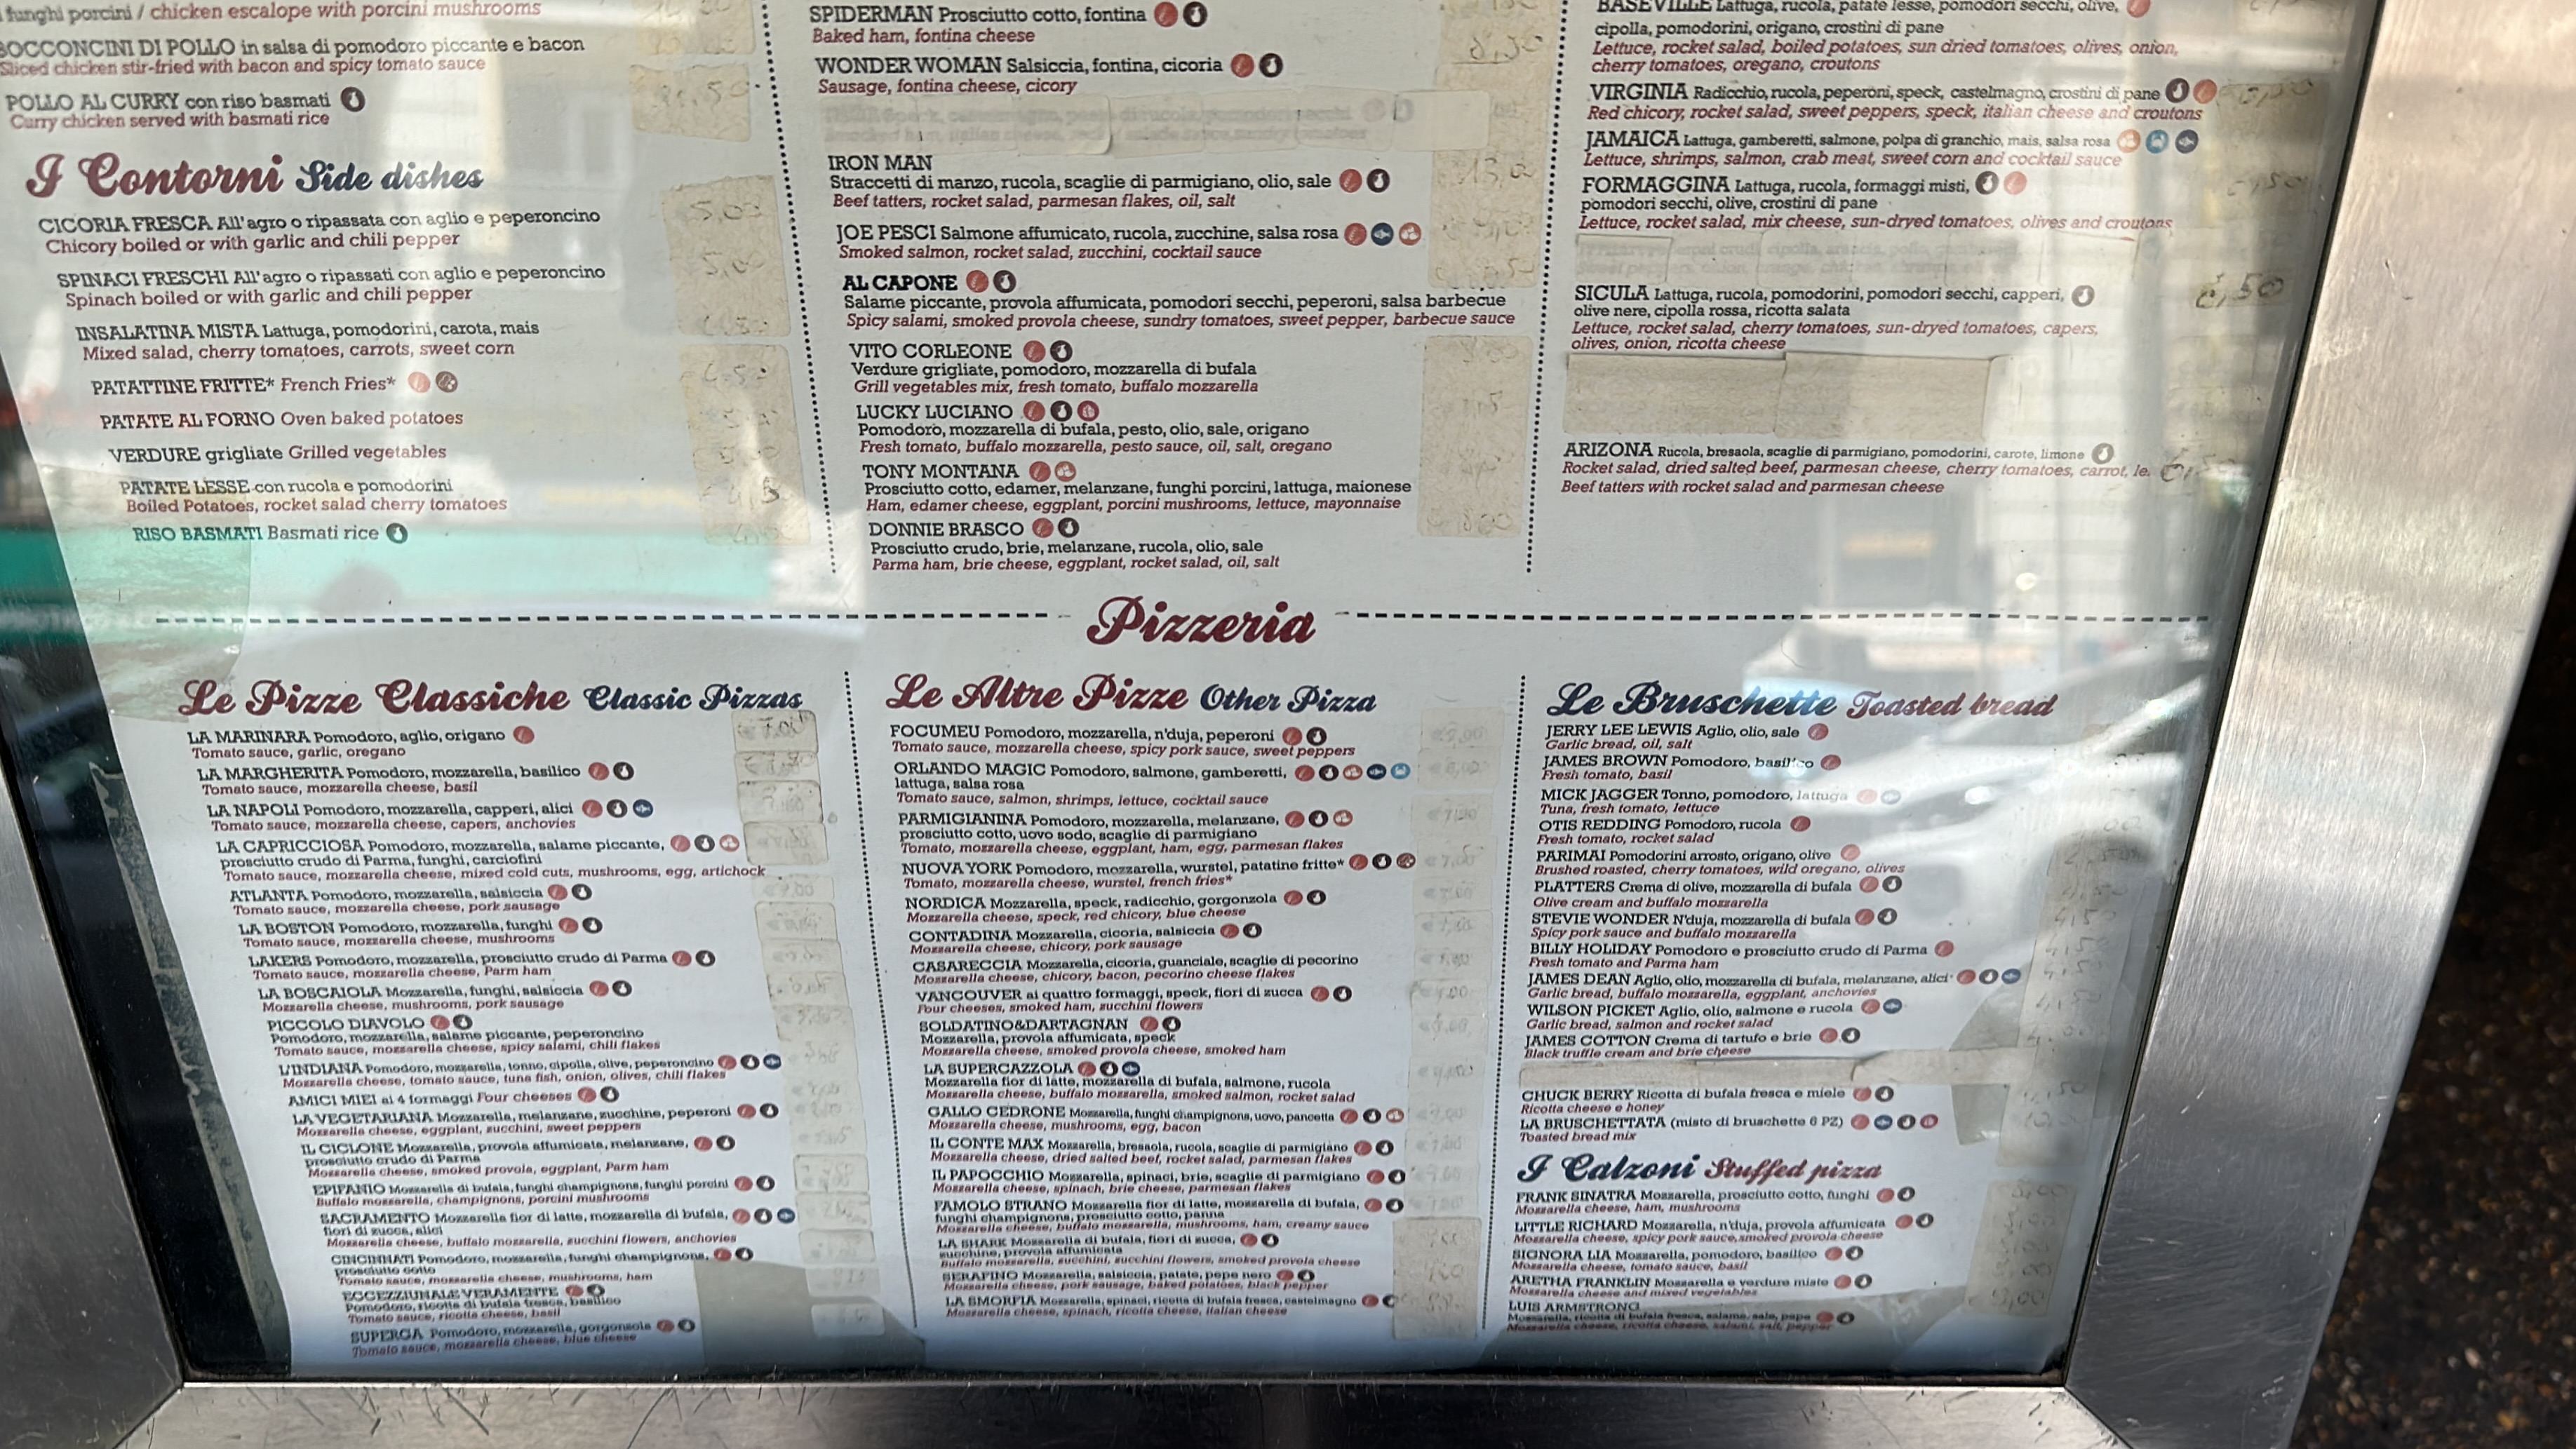 funghi porcini / chicken escalope with porcini mushrooms
BOCCONCINI DI POLLO in salsa di pomodoro piccante e bacon
Sliced chicken stir-fried with bacon and spicy tomato sauce
POLLO AL CURRY con riso basmati
Curry chicken served with basmati rice
I Contorni Side dishes
CICORIA FRESCA All'agro o ripassata con aglio e peperoncino
5,00
Chicory boiled or with garlic and chili pepper
SPINACI FRESCHI All'agro o ripassati con aglio e peperoncino
5,00
Spinach boiled or with garlic and chili pepper
INSALATINA MISTA Lattuga, pomodorini, carota, mais
Mixed salad, cherry tomatoes, carrots, sweet corn
PATATTINE FRITTE* French Fries*
PATATE AL FORNO Oven baked potatoes
VERDURE grigliate Grilled vegetables
PATATE LESSE con rucola e pomodorini
Boiled Potatoes, rocket salad cherry tomatoes
RISO BASMATI Basmati rice
SPIDERMAN Prosciutto cotto, fontina
Baked ham, fontina cheese
WONDER WOMAN Salsiccia, fontina, cicoria
Sausage, fontina cheese, cicory
IRON MAN
Straccetti di manzo, rucola, scaglie di parmigiano, olio, sale
Beef tatters, rocket salad, parmesan flakes, oil, salt
JOE PESCI Salmone affumicato, rucola, zucchine, salsa rosa
Smoked salmon, rocket salad, zucchini, cocktail sauce
AL CAPONE
Salame piccante, provola affumicata, pomodori secchi, peperoni, salsa barbecue
Spicy salami, smoked provola cheese, sundry tomatoes, sweet pepper, barbecue sauce
VITO CORLEONE
Verdure grigliate, pomodoro, mozzarella di bufala
Grill vegetables mix, fresh tomato, buffalo mozzarella
LUCKY LUCIANO
Pomodoro, mozzarella di bufala, pesto, olio, sale, origano
Fresh tomato, buffalo mozzarella, pesto sauce, oil, salt, oregano
TONY MONTANA
Prosciutto cotto, edamer, melanzane, funghi porcini, lattuga, maionese
Ham, edamer cheese, eggplant, porcini mushrooms, lettuce, mayonnaise
DONNIE BRASCO
Prosciutto crudo, brie, melanzane, rucola, olio, sale
Parma ham, brie cheese, eggplant, rocket salad, oil, salt
BASEVILLE Lattuga, rucola, patate lesse, pomodori secchi, olive,
cipolla, pomodorini, origano, crostini di pane
Lettuce, rocket salad, boiled potatoes, sun dried tomatoes, olives, onion,
cherry tomatoes, oregano, croutons
VIRGINIA Radicchio, rucola, peperoni, speck, castelmagno, crostini di pane
Red chicory, rocket salad, sweet peppers, speck, italian cheese and croutons
JAMAICA Lattuga, gamberetti, salmone, polpa di granchio, mais, salsa rosa
Lettuce, shrimps, salmon, crab meat, sweet corn and cocktail sauce
FORMAGGINA Lattuga, rucola, formaggi misti,
pomodori secchi, olive, crostini di pane
Lettuce, rocket salad, mix cheese, sun-dryed tomatoes, olives and croutons
SICULA Lattuga, rucola, pomodorini, pomodori secchi, capperi,
6,50
olive nere, cipolla rossa, ricotta salata
Lettuce, rocket salad, cherry tomatoes, sun-dryed tomatoes, capers,
olives, onion, ricotta cheese
ARIZONA Rucola, bresaola, scaglie di parmigiano, pomodorini, carote, limone
Rocket salad, dried salted beef, parmesan cheese, cherry tomatoes, carrot, le.
Beef tatters with rocket salad and parmesan cheese
Pizzeria
Le Pizze Classiche Classic Pizzas
LA MARINARA Pomodoro, aglio, origano
€ 7,00
Tomato sauce, garlic, oregano
LA MARGHERITA Pomodoro, mozzarella, basilico
Tomato sauce, mozzarella cheese, basil
LA NAPOLI Pomodoro, mozzarella, capperi, alici
Tomato sauce, mozzarella cheese, capers, anchovies
LA CAPRICCIOSA Pomodoro, mozzarella, salame piccante,
prosciutto crudo di Parma, funghi, carciofini
Tomato sauce, mozzarella cheese, mixed cold cuts, mushrooms, egg, artichock
ATLANTA Pomodoro, mozzarella, salsiccia
Tomato sauce, mozzarella cheese, pork sausage
LA BOSTON Pomodoro, mozzarella, funghi
Tomato sauce, mozzarella cheese, mushrooms
LAKERS Pomodoro, mozzarella, prosciutto crudo di Parma
Tomato sauce, mozzarella cheese, Parm ham
LA BOSCAIOLA Mozzarella, funghi, salsiccia
Mozzarella cheese, mushrooms, pork sausage
PICCOLO DIAVOLO
Pomodoro, mozzarella, salame piccante, peperoncino
Tomato sauce, mozzarella cheese, spicy salami, chili flakes
L'INDIANA Pomodoro, mozzarella, tonno, cipolla, olive, peperoncino
Mozzarella cheese, tomato sauce, tuna fish, onion, olives, chili flakes
AMICI MIEI ai 4 formaggi Four cheeses
LA VEGETARIANA Mozzarella, melanzane, zucchine, peperoni
Mozzarella cheese, eggplant, zucchini, sweet peppers
IL CICLONE Mozzarella, provola affumicata, melanzane,
prosciutto crudo di Parma
Mozzarella cheese, smoked provola, eggplant, Parm ham
EPIFANIO Mozzarella di bufala, funghi champignons, funghi porcini
Buffalo mozzarella, champignons, porcini mushrooms
SACRAMENTO Mozzarella fior di latte, mozzarella di bufala,
fiori di zucca, alici
Mozzarella cheese, buffalo mozzarella, zucchini flowers, anchovies
CINCINNATI Pomodoro, mozzarella, funghi champignons,
prosciutto cotto
Tomato sauce, mozzarella cheese, mushrooms, ham
ECCEZZIUNALE VERAMENTE
Pomodoro, ricotta di bufala fresca, basilico
Tomato sauce, ricotta cheese, basil
SUPERGA Pomodoro, mozzarella, gorgonzola
Tomato sauce, mozzarella cheese, blue cheese
Le Altre Pizze Other Pizza
FOCUMEU Pomodoro, mozzarella, n'duja, peperoni
Tomato sauce, mozzarella cheese, spicy pork sauce, sweet peppers
ORLANDO MAGIC Pomodoro, salmone, gamberetti,
lattuga, salsa rosa
Tomato sauce, salmon, shrimps, lettuce, cocktail sauce
PARMIGIANINA Pomodoro, mozzarella, melanzane,
prosciutto cotto, uovo sodo, scaglie di parmigiano
Tomato, mozzarella cheese, eggplant, ham, egg, parmesan flakes
NUOVA YORK Pomodoro, mozzarella, wurstel, patatine fritte*
Tomato, mozzarella cheese, wurstel, french fries*
NORDICA Mozzarella, speck, radicchio, gorgonzola
Mozzarella cheese, speck, red chicory, blue cheese
CONTADINA Mozzarella, cicoria, salsiccia
Mozzarella cheese, chicory, pork sausage
CASARECCIA Mozzarella, cicoria, guanciale, scaglie di pecorino
Mozzarella cheese, chicory, bacon, pecorino cheese flakes
VANCOUVER ai quattro formaggi, speck, fiori di zucca
Four cheeses, smoked ham, zucchini flowers
SOLDATINO&DARTAGNAN
Mozzarella, provola affumicata, speck
Mozzarella cheese, smoked provola cheese, smoked ham
LA SUPERCAZZOLA
Mozzarella fior di latte, mozzarella di bufala, salmone, rucola
Mozzarella cheese, buffalo mozzarella, smoked salmon, rocket salad
GALLO CEDRONE Mozzarella, funghi champignons, uovo, pancetta
Mozzarella cheese, mushrooms, egg, bacon
IL CONTE MAX Mozzarella, bresaola, rucola, scaglie di parmigiano
Mozzarella cheese, dried salted beef, rocket salad, parmesan flakes
IL PAPOCCHIO Mozzarella, spinaci, brie, scaglie di parmigiano
Mozzarella cheese, spinach, brie cheese, parmesan flakes
FAMOLO STRANO Mozzarella fior di latte, mozzarella di bufala,
funghi champignons, prosciutto cotto, panna
Mozzarella cheese, buffalo mozzarella, mushrooms, ham, creamy sauce
LA SHARK Mozzarella di bufala, fiori di zucca,
zucchine, provola affumicata
Buffalo mozzarella, zucchini, zucchini flowers, smoked provola cheese
SERAFINO Mozzarella, salsiccia, patate, pepe nero
Mozzarella cheese, pork sausage, baked potatoes, black pepper
LA SMORFIA Mozzarella, spinaci, ricotta di bufala fresca, castelmagno
Mozzarella cheese, spinach, ricotta cheese, italian cheese
Le Bruschette Toasted bread
JERRY LEE LEWIS Aglio, olio, sale
Garlic bread, oil, salt
JAMES BROWN Pomodoro, basilico
Fresh tomato, basil
MICK JAGGER Tonno, pomodoro, lattuga
Tuna, fresh tomato, lettuce
OTIS REDDING Pomodoro, rucola
Fresh tomato, rocket salad
PARIMAI Pomodorini arrosto, origano, olive
Brushed roasted, cherry tomatoes, wild oregano, olives
PLATTERS Crema di olive, mozzarella di bufala
Olive cream and buffalo mozzarella
STEVIE WONDER N'duja, mozzarella di bufala
Spicy pork sauce and buffalo mozzarella
BILLY HOLIDAY Pomodoro e prosciutto crudo di Parma
Fresh tomato and Parma ham
JAMES DEAN Aglio, olio, mozzarella di bufala, melanzane, alici
Garlic bread, buffalo mozzarella, eggplant, anchovies
WILSON PICKET Aglio, olio, salmone e rucola
Garlic bread, salmon and rocket salad
JAMES COTTON Crema di tartufo e brie
Black truffle cream and brie cheese
CHUCK BERRY Ricotta di bufala fresca e miele
Ricotta cheese e honey
LA BRUSCHETTATA (misto di bruschette 6 PZ)
Toasted bread mix
I Calzoni Stuffed pizza
FRANK SINATRA Mozzarella, prosciutto cotto, funghi
Mozzarella cheese, ham, mushrooms
LITTLE RICHARD Mozzarella, n'duja, provola affumicata
Mozzarella cheese, spicy pork sauce, smoked provola cheese
SIGNORA LIA Mozzarella, pomodoro, basilico
Mozzarella cheese, tomato sauce, basil
ARETHA FRANKLIN Mozzarella e verdure miste
Mozzarella cheese and mixed vegetables
LUIS ARMSTRONG
Mozzarella, ricotta di bufala fresca, salame, sale, pepe
Mozzarella cheese, ricotta cheese, salami, salt, pepper